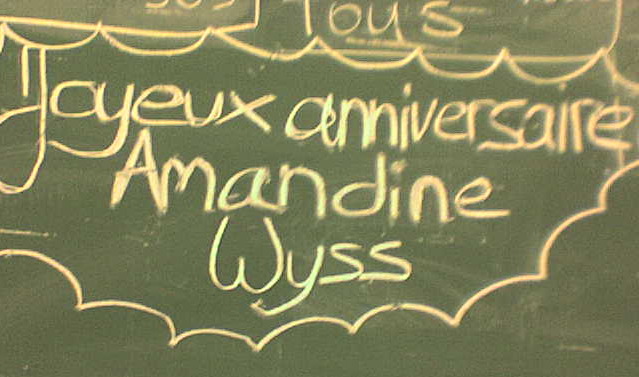 Tous
Joyeux anniversaire
Amandine
Wyss